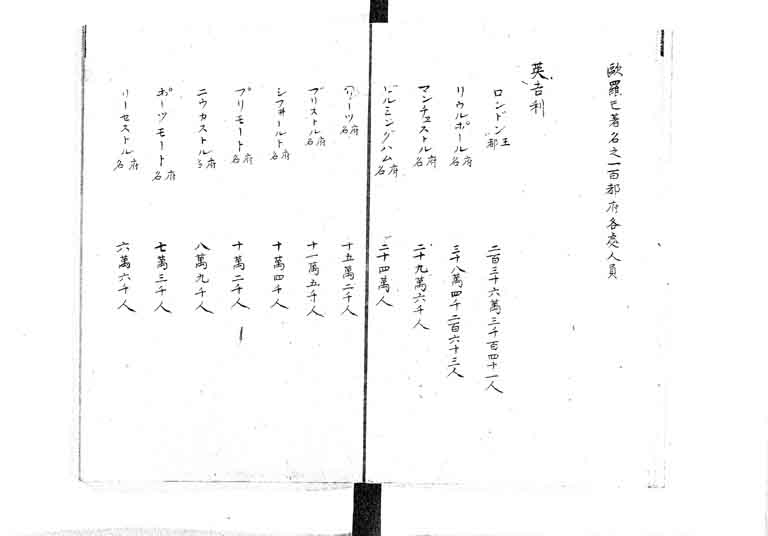 歐羅巴著名之一百都府各處人員
英吉利
ロンドン 王都 二百三十六萬三千百四十一人
リウルポール 府名 三十八萬四千二百六十三人
マンチェストル 府名 二十九萬六千人
ビルミングハム 府名 二十四萬人
リーツ 府名 十五萬二千人
ブリストル 府名 十一萬五千人
シフヰールト 府名 十萬四千人
プリモート 府名 十萬二千人
ニウカストル 府名 八萬九千人
ポーツモート 府名 七萬三千人
リーセストル 府名 六萬六千人